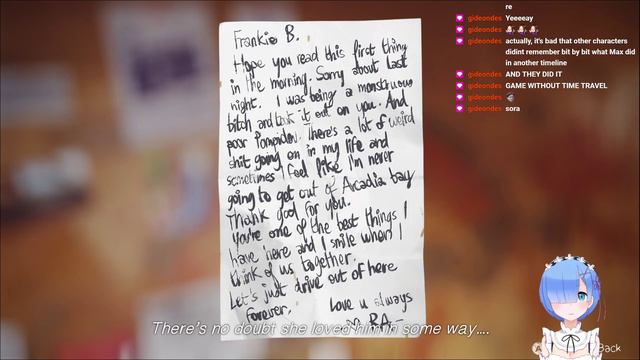 Frankie B.
Hope you read this first thing
in the morning. Sorry about last
night. I was being a monstrous
bitch and took it out on you. And
poor Pompidou. There's a lot of weird
shit going on in my life and
sometimes I feel like I'm never
going to get out of Arcadia bay
Thank god for you.
You're one of the best things I
have here and I smile when I
think of us together.
Let's just drive out of here
forever.
Love u always
RA
There's no doubt she loved him in some way....
re
gideondes Yeeeeay
gideondes
gideondes actually, it's bad that other characters
didint remember bit by bit what Max did
in another timeline
gideondes AND THEY DID IT
gideondes GAME WITHOUT TIME TRAVEL
gideondes
gideondes sora
Back